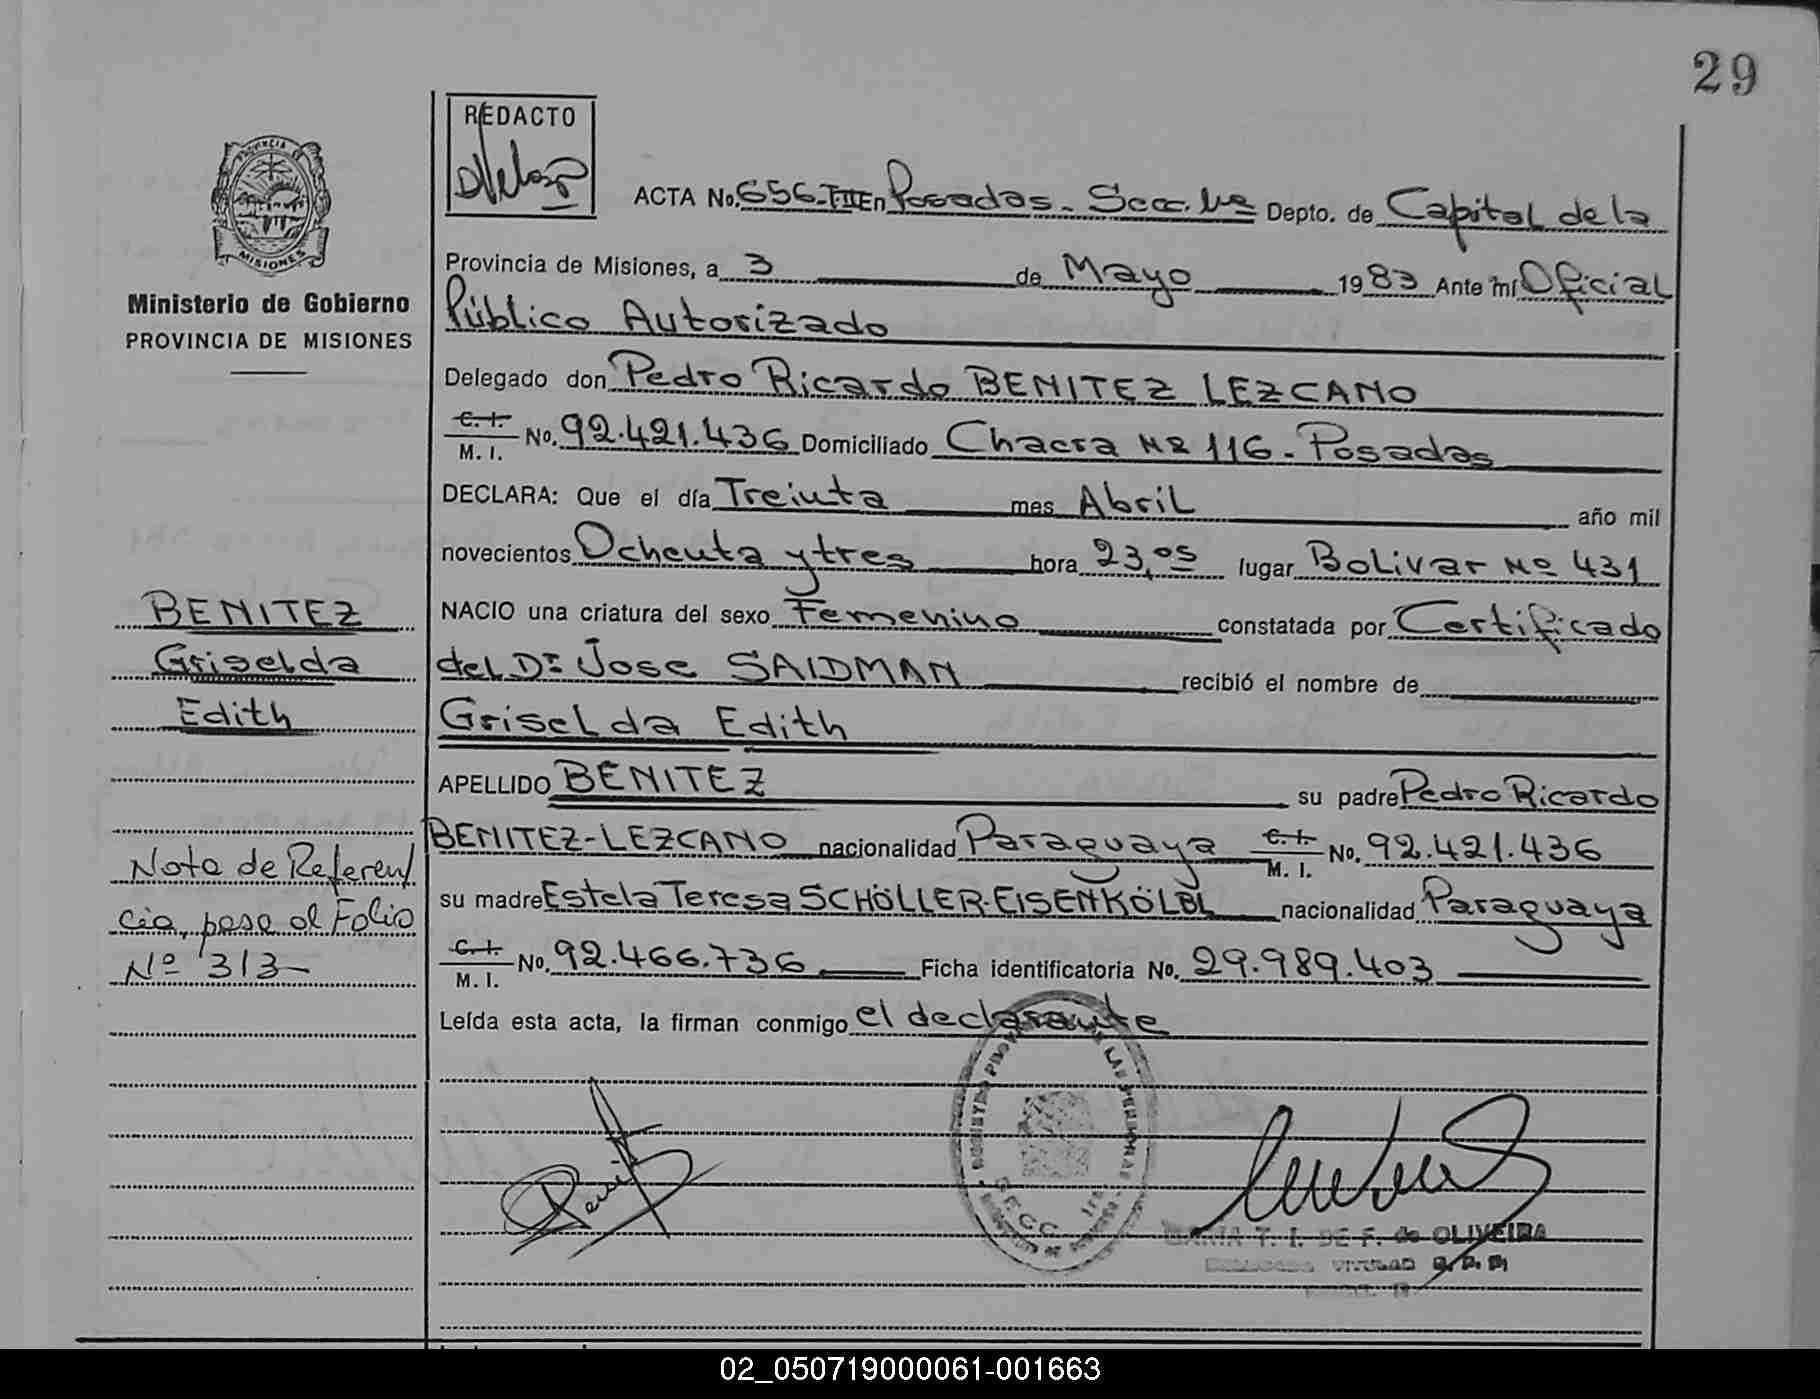 29
REDACTO
ACTA No. 656-TIII En Posadas - Secc. 1ra Depto. de Capital de la
Provincia de Misiones, a 3 de Mayo 1983 Ante mí Oficial
Público Autorizado
Delegado don Pedro Ricardo BENITEZ LEZCANO
C. I.
M. I. No. 92.421.436 Domiciliado Chacra Nº 116 - Posadas
DECLARA: Que el día Treinta mes Abril año mil
novecientos Ochenta y tres hora 23,05 lugar Bolivar Nº 431
NACIO una criatura del sexo Femenino constatada por Certificado
del Dr. Jose SAIDMAN recibió el nombre de
Griselda Edith
APELLIDO BENITEZ su padre Pedro Ricardo
BENITEZ-LEZCANO nacionalidad Paraguaya C. I. M. I. No. 92.421.436
su madre Estela Teresa SCHÖLLER-EISENKÖLBL nacionalidad Paraguaya
C. I.
M. I. No. 92.466.736 Ficha identificatoria No. 29.989.403
Leída esta acta, la firman conmigo el declarante
PROVINCIA DE
MISIONES
Ministerio de Gobierno
PROVINCIA DE MISIONES
BENITEZ
Griselda
Edith
Nota de Referen
cia, pase al Folio
Nº 313-
LAS PERSONAS
SECC. 1ra
T. I. DE F. de OLIVEIRA
02_050719000061-001663